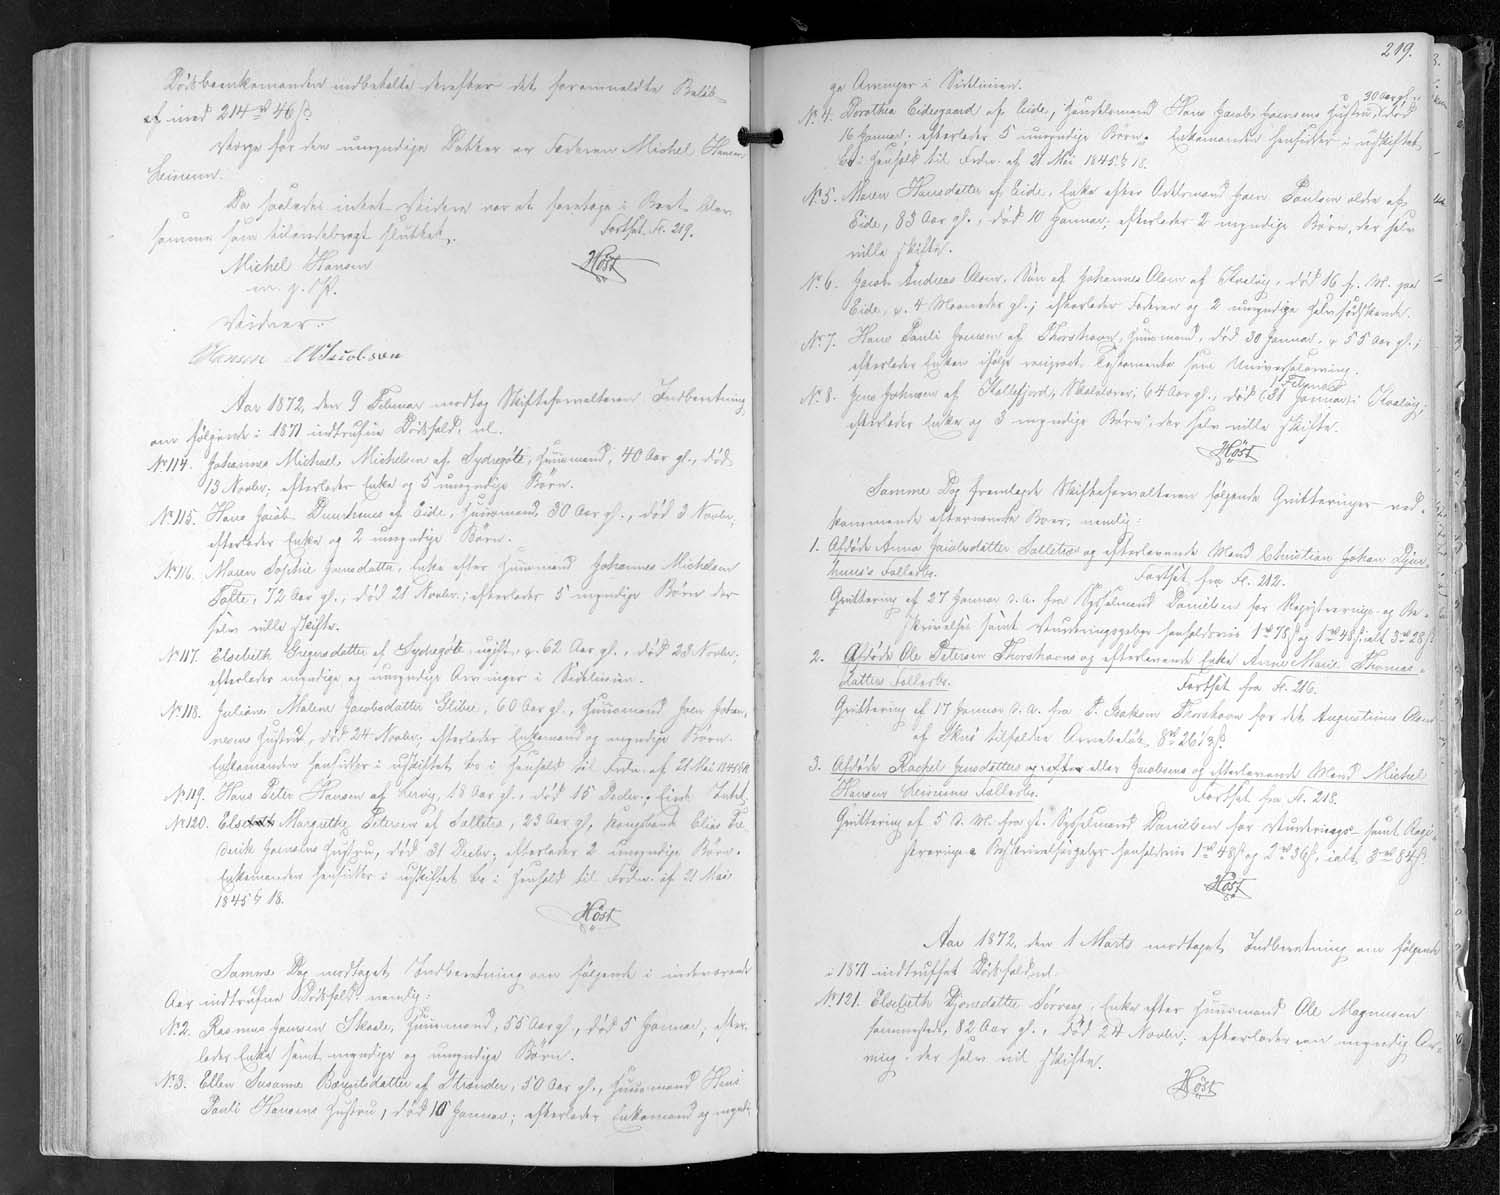 Dødsboenkemanden indbetalte derefter det foranmeldte Beløb
af med 214 rd 46 ß.
Værge for den umyndige Datter er Faderen Michel Hansen
Leinum.
Da saaledes intet videre var at foretage i Boet blev
samme som tilendebragt sluttet.
Fortsat Fl. 219.
Michel Hansen
m. p. P.
Høst
Vidner:
Hansen MJacobsen
Aar 1872, den 9 Februar modtog Skifteforvalteren Indberetning
om følgende i 1871 indtrufne Dødsfald, nl.
No 114. Johannes Michael Michelsen af Sydregøte, Huusmand, 40 Aar gl., død
13 Novbr; efterlader Enke og 5 umyndige Børn.
No 115. Hans Jacob af Eide, Huusmand, 30 Aar gl., død 3 Novbr,
efterlader Enke og 2 umyndige Børn.
No 116. Maren Sophie Joensdatter, Enke efter Huusmand Johannes Michelsen
72 Aar gl., død 21 Novbr; efterlader 5 myndige Børn der
selv ville skifte.
No 117. Elsebeth Gregersdatter af Sydregøte, ugift, c. 62 Aar gl., død 23 Novbr,
efterlader myndige og umyndige Arvinger i Sidelinien.
No 118. Juliane Malene Jacobsdatter Glibre, 60 Aar gl., Huusmand Joen Johan-
nesens Hustru, død 24 Novbr. efterlader Enkemand og myndige Børn.
Enkemanden hensidder i uskiftet Bo i Henhold til Frdn. af 21 Mai 1845 § 18.
No 119. Hans Peter Hansen af Lervig, 18 Aar gl., død 15 Decbr., Eiede Intet.
No 120. Margrethe Petersen af Saltetra, 23 Aar gl, Kongsbonde Elias Fre
derik Joensens Hustru, død 31 Decbr; efterlader 2 umyndige Børn.
Enkemanden hensidder i uskiftet Bo i Henhold til Frdn. af 21 Mai
1845 § 18.
Høst
Samme Dag modtaget Indberetning om følgende i indeværende
Aar indtrufne Dødsfald nemlig:
No 2. Rasmus Jansen Skaale, Huusmand, 55 Aar gl., død 5 Januar; efter-
lader Enke samt myndige og umyndige Børn.
No 3. Ellen Susanne Barentsdatter af Strænder, 50 Aar gl., Huusmand Hans
Pauli Hansens Hustru, død 10 Januar; efterlader Enkemand og myndi-
219.
ge Arvinger i Sidelinien.
c 30 Aar gl.
No 4. Dorothea Eidesgaard af Eide, Handelsmand Hans Jacob Joensens Hustru, død
16 Januar; efterlader 5 umyndige Børn. Enkemanden hensidder i uskiftet
Bo i Henhold til Frdn. af 21 Mai 1845 § 18.
No 5. Maren Hansdatter af Eide, Enke efter Odelsmand Joen Poulsen ældre af
Eide, 83 Aar gl., død 10 Januar; efterlader 2 myndige Børn, der selv
ville skifte.
No 6. Jacob Andreas Olsen, Søn af Johannes Olsen af Kvalvig, død 16 f. M. paa
Eide, c. 4 Maaneder gl.; efterlader Faderen og 2 umyndige Helsødskende.
No 7. Hans Pauli Jensen af Thorshavn, Huusmand, død 30 Januar, c 55 Aar gl.;
efterlader Enken ifølge reciproct Testamente som Universalarving.
1st Februar
No 8. Jens Johnsen af Kollefjord, Skolelærer, 64 Aar gl., død (31 Januar) i Kvalvig,
efterlader Enke og 3 myndige Børn, der selv ville skifte.
Høst
Samme Dag fremlagde Skifteforvalteren følgende Qvitteringer ved-
kommende efternævnte Boer, nemlig:
1. Afdøde Anna Jacobsdatter Saltetra og efterlevende Mand Christian Johan Djur-
huus's Fællesbo.
Fortsat fra Fl. 212.
Qvittering af 27 Januar d. A. fra Sysselmand Danielsen for Registrerings og Be-
skrivelses samt Vurderingsgebyr henholdsvis 1 rd 78 ß og 1 rd 48 ß, ialt 3 rd 28 ß
2. Afdøde Ole Petersen Thorshavns og efterlevende Enke Anne Marie Thomas-
datters Fællesbo.
Fortsat fra Fl. 216.
Qvittering af 17 Januar d. A. fra P. Isaksen Thorshavn for det Augustinus Olsen
af tilfaldne Arvebeløb, 8 rd 26 1/3 ß.
3. Afdøde Rachel Joensdatters eller Jacobsens og efterlevende Mand Michel
Hansen Leinums Fællesbo.
Fortsat fra Fl. 218.
Qvittering af 5 d. M. fra Sysselmand Danielsen for Vurderings- samt Regi-
strerings & Beskrivelsesgebyr henholdsvis 1 rd 48 ß og 2 rd 36 ß, ialt 3 rd 84 ß.
Høst
Aar 1872, den 1 Marts modtaget Indberetning om følgende
i 1871 indtruffet Dødsfald, nl.
No 121. Elsebeth Djonesdatter Sørvaag, Enke efter Huusmand Ole Magnusen
sammesteds, 82 Aar gl., død 24 Novbr; efterlader en myndig Ar-
ving der selv vil skifte.
Høst